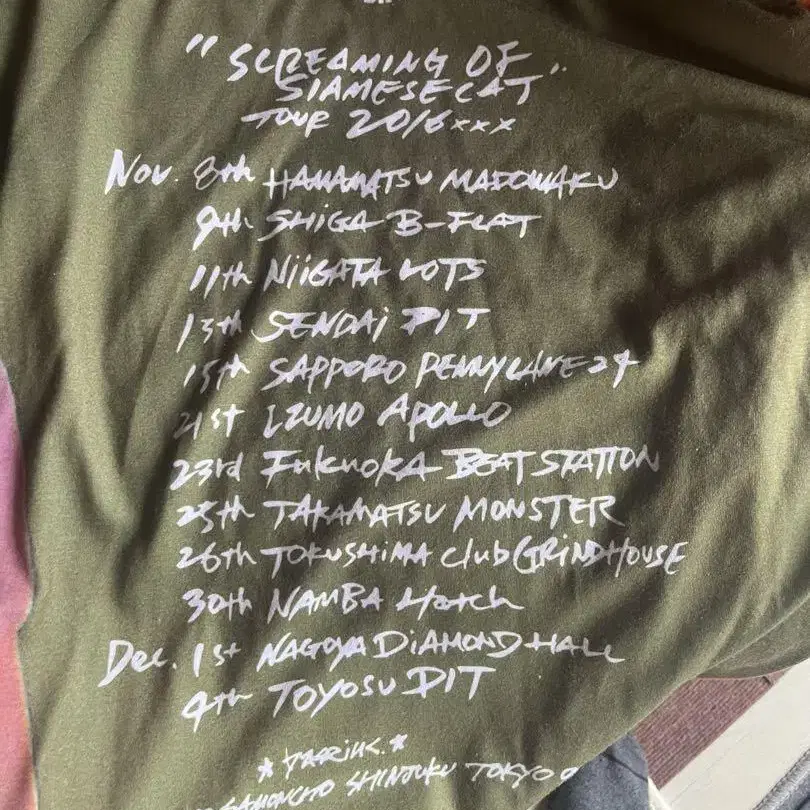 "SCREAMING OF
SIAMESECAT"
TOUR 2016xxx
Nov. 8th HAMAMATSU MADOWAKU
9th SHiGA B-FLAT
11th NiiGATA LOTS
13th SENDAi PIT
15th SAPPORO PENNYLANE24
21st IZUMO APOLLO
23rd FukuokA BEAT STATION
25th TAKAMATSU MONSTER
26th TOKUSHIMA club GRiNDHOUSE
30th NAMBA Hatch
Dec. 1st NAGOYA DiAMOND HALL
4th TOYOSU PIT
SHINJUKU TOKYO